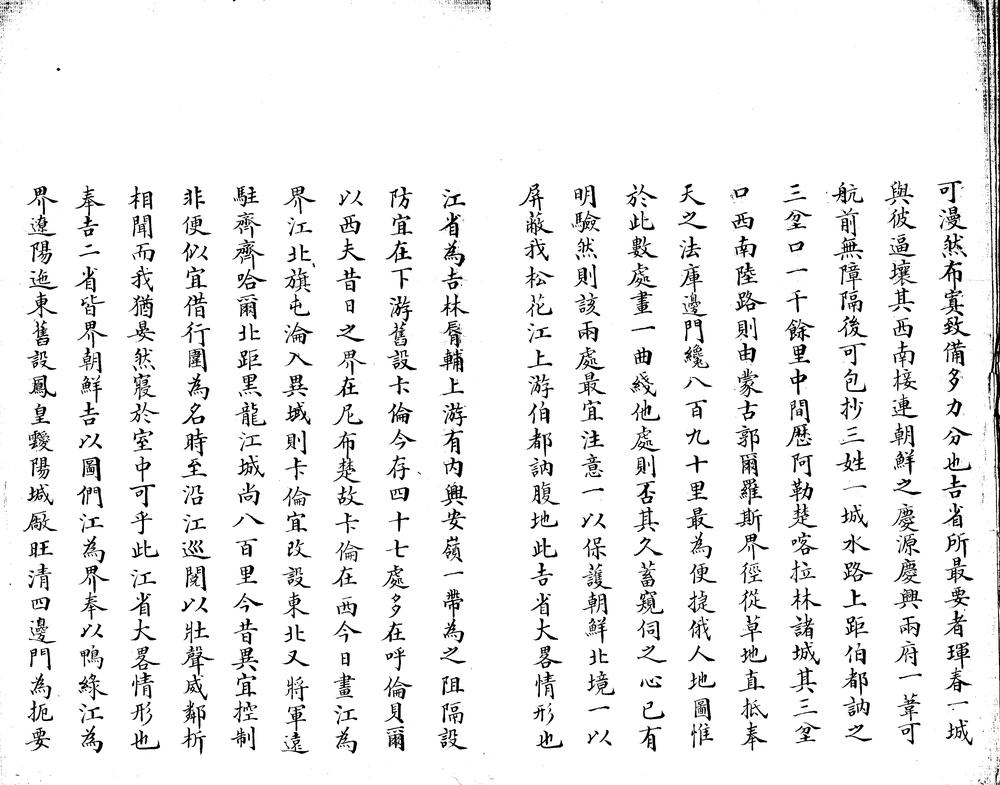 可漫然布寘致備多力分也吉省所最要者琿春一城
與彼逼壤其西南接連朝鮮之慶源慶興兩府一葦可
航前無障隔後可包抄三姓一城水路上距伯都訥之
三岔口一千餘里中間歷阿勒楚喀拉林諸城其三岔
口西南陸路則由蒙古郭爾羅斯界徑從草地直抵奉
天之法庫邊門纔八百九十里最為便捷俄人地圖惟
於此數處畫一曲綫他處則否其久蓄窺伺之心已有
明驗然則該兩處最宜注意一以保護朝鮮北境一以
屏蔽我松花江上游伯都訥腹地此吉省大畧情形也
江省為吉林脣輔上游有內興安嶺一帶為之阻隔設
防宜在下游舊設卡倫今存四十七處多在呼倫貝爾
以西夫昔日之界在尼布楚故卡倫在西今日畫江為
界江北旗屯淪入異域則卡倫宜改設東北又將軍遠
駐齊齊哈爾北距黑龍江城尚八百里今昔異宜控制
非便似宜借行圍為名時至沿江巡閱以壯聲威鄰析
相聞而我猶晏然寢於室中可乎此江省大畧情形也
奉吉二省皆界朝鮮吉以圖們江為界奉以鴨綠江為
界遼陽迤東舊設鳳皇靉陽城廠旺清四邊門為扼要